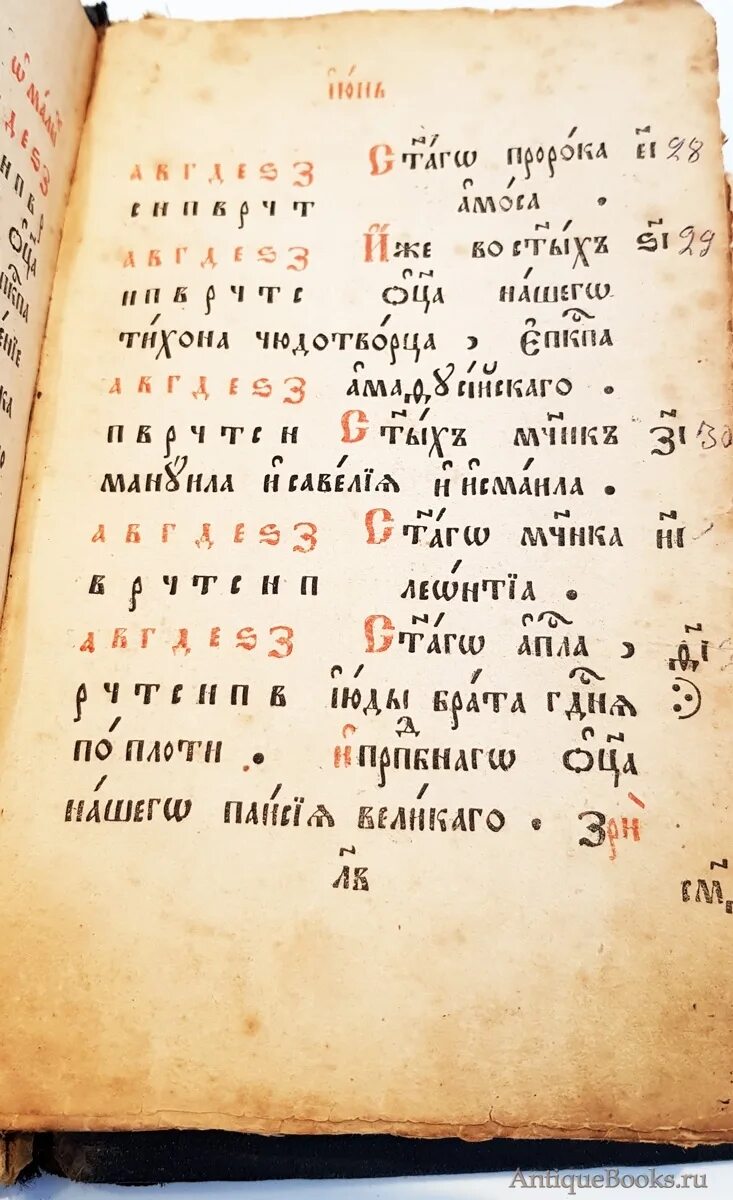 і҆ю́нь
а в г д е ѕ з Ст҃а́гѡ проро́ка е҃і 28
с н п в р ч т а҆мо́са .
а в г д е ѕ з И҆́же во ст҃ы́хъ ѕ҃і 29
н п в р ч т с ѻ҆ц҃а̀ на́шегѡ
ти́хона чюдотво́рца , є҆пⷭ҇кпа
а в г д е ѕ з а҆маѳꙋсі́йскаго .
п в р ч т с н Ст҃ы́хъ мч҃нкъ з҃і 30
манꙋ́ила и҆ саве́лїѧ и҆ и҆сма́ила .
а в г д е ѕ з Ст҃а́гѡ мч҃нка и҃і
в р ч т с н п лео́нтїа .
а в г д е ѕ з Ст҃а́гѡ а҆пⷭ҇ла , ѳ҃і
р ч т с н п в і҆ю́ды бра́та гдⷭ҇нѧ
по́ плоти . И҆ прпⷣбнагѡ ѻ҆ц҃а̀
на́шегѡ паи́сїѧ вели́каго . Зрѝ
л҃в